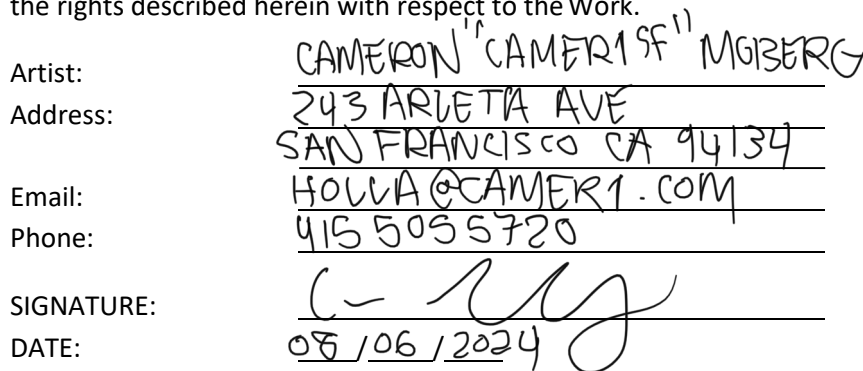 the rights described herein with respect to the Work.
Artist: CAMERON "CAMER1SF" MOBERG
Address: 243 ARLETA AVE
SAN FRANCISCO CA 94134
Email: HOLLA@CAMER1.COM
Phone: 415 505 5720
SIGNATURE:
DATE: 08/06/2024